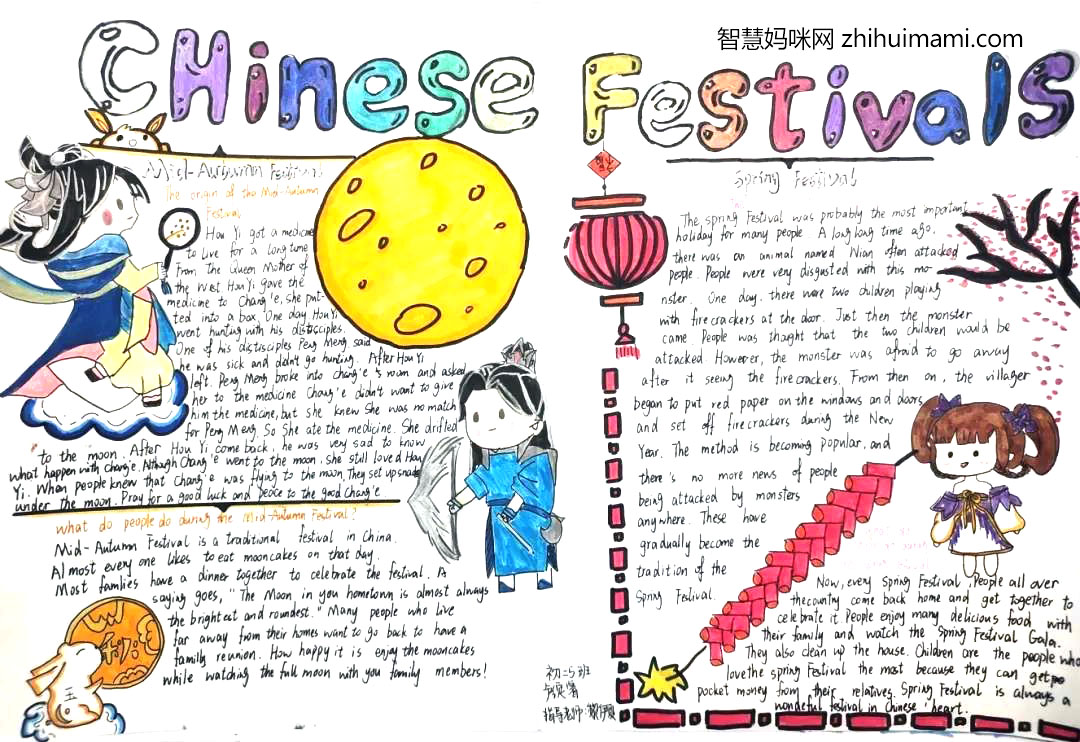 智慧妈咪网 zhihuimami.com
CHinese Festivals
Mid-Autumn Festival
The origin of the Mid-Autumn
Festival
Hou Yi got a medicine
to live for a long time
from the Queen Mother of
the West. Hou Yi gave the
medicine to Chang'e, she put-
ted into a box. One day, Hou Yi
went hunting with his distisciples.
One of his distisciples Peng Meng said
he was sick and didn't go hunting. After Hou Yi
left. Peng Meng broke into chang'e's room and asked
her to the medicine. Chang'e didn't want to give
him the medicine, but she knew she was no match
for Peng Meng. So she ate the medicine. She drifled
to the moon. After Hou Yi come back, he was very sad to know
what happen with chang'e. Nthough Chang'e went to the moon, she still loved Hou
Yi. When people knew that Chang'e was flying to the moon, They set up
under the moon. Pray for a good luck and peace to the good Chang'e
what do people do during the Mid-Autumn Festival?
Mid-Autumn Festival is a traditional festival in China.
Almost every one likes to eat mooncakes on that day.
Most famlies have a dinner together to celebrate the festival. A
saying goes, "The Moon in you hometown is almost always
the brightest and roundest." Many people who live
far away from their homes want to go back to have a
family reunion. How happy it is enjoy the mooncakes
while watching the full moon with you family members!
Spring Festival
The spring Festival was probably the most important
holiday for many people. A long long time ago,
there was an animal named Nian often attacked
people. People were very disgusted with this mo-
nster. One day, there were two children playing
with firecrackers at the door. Just then the monster
came. People was thought that the two children would be
attacked. However, the monster was afraid to go away
after it seeing the firecrackers. From then on, the villager
began to put red paper on the windows and doors,
and set off firecrackers during the New
Year. The method is becoming popular, and
there's no more news of people
being attacked by monsters
anywhere. These have
gradually become the
tradition of the
Spring Festival.
Now, every Spring Festival, People all over
the country come back home and get together to
celebrate it. People enjoy many delicious food with
their family and watch the Spring Festival Gala.
They also clean up the house. Children are the people who
love the spring Festival the most because they can get
pocket money from their relatives. Spring Festival is always a
wondeful festival in Chinese' heart.
初二5班
指导老师: